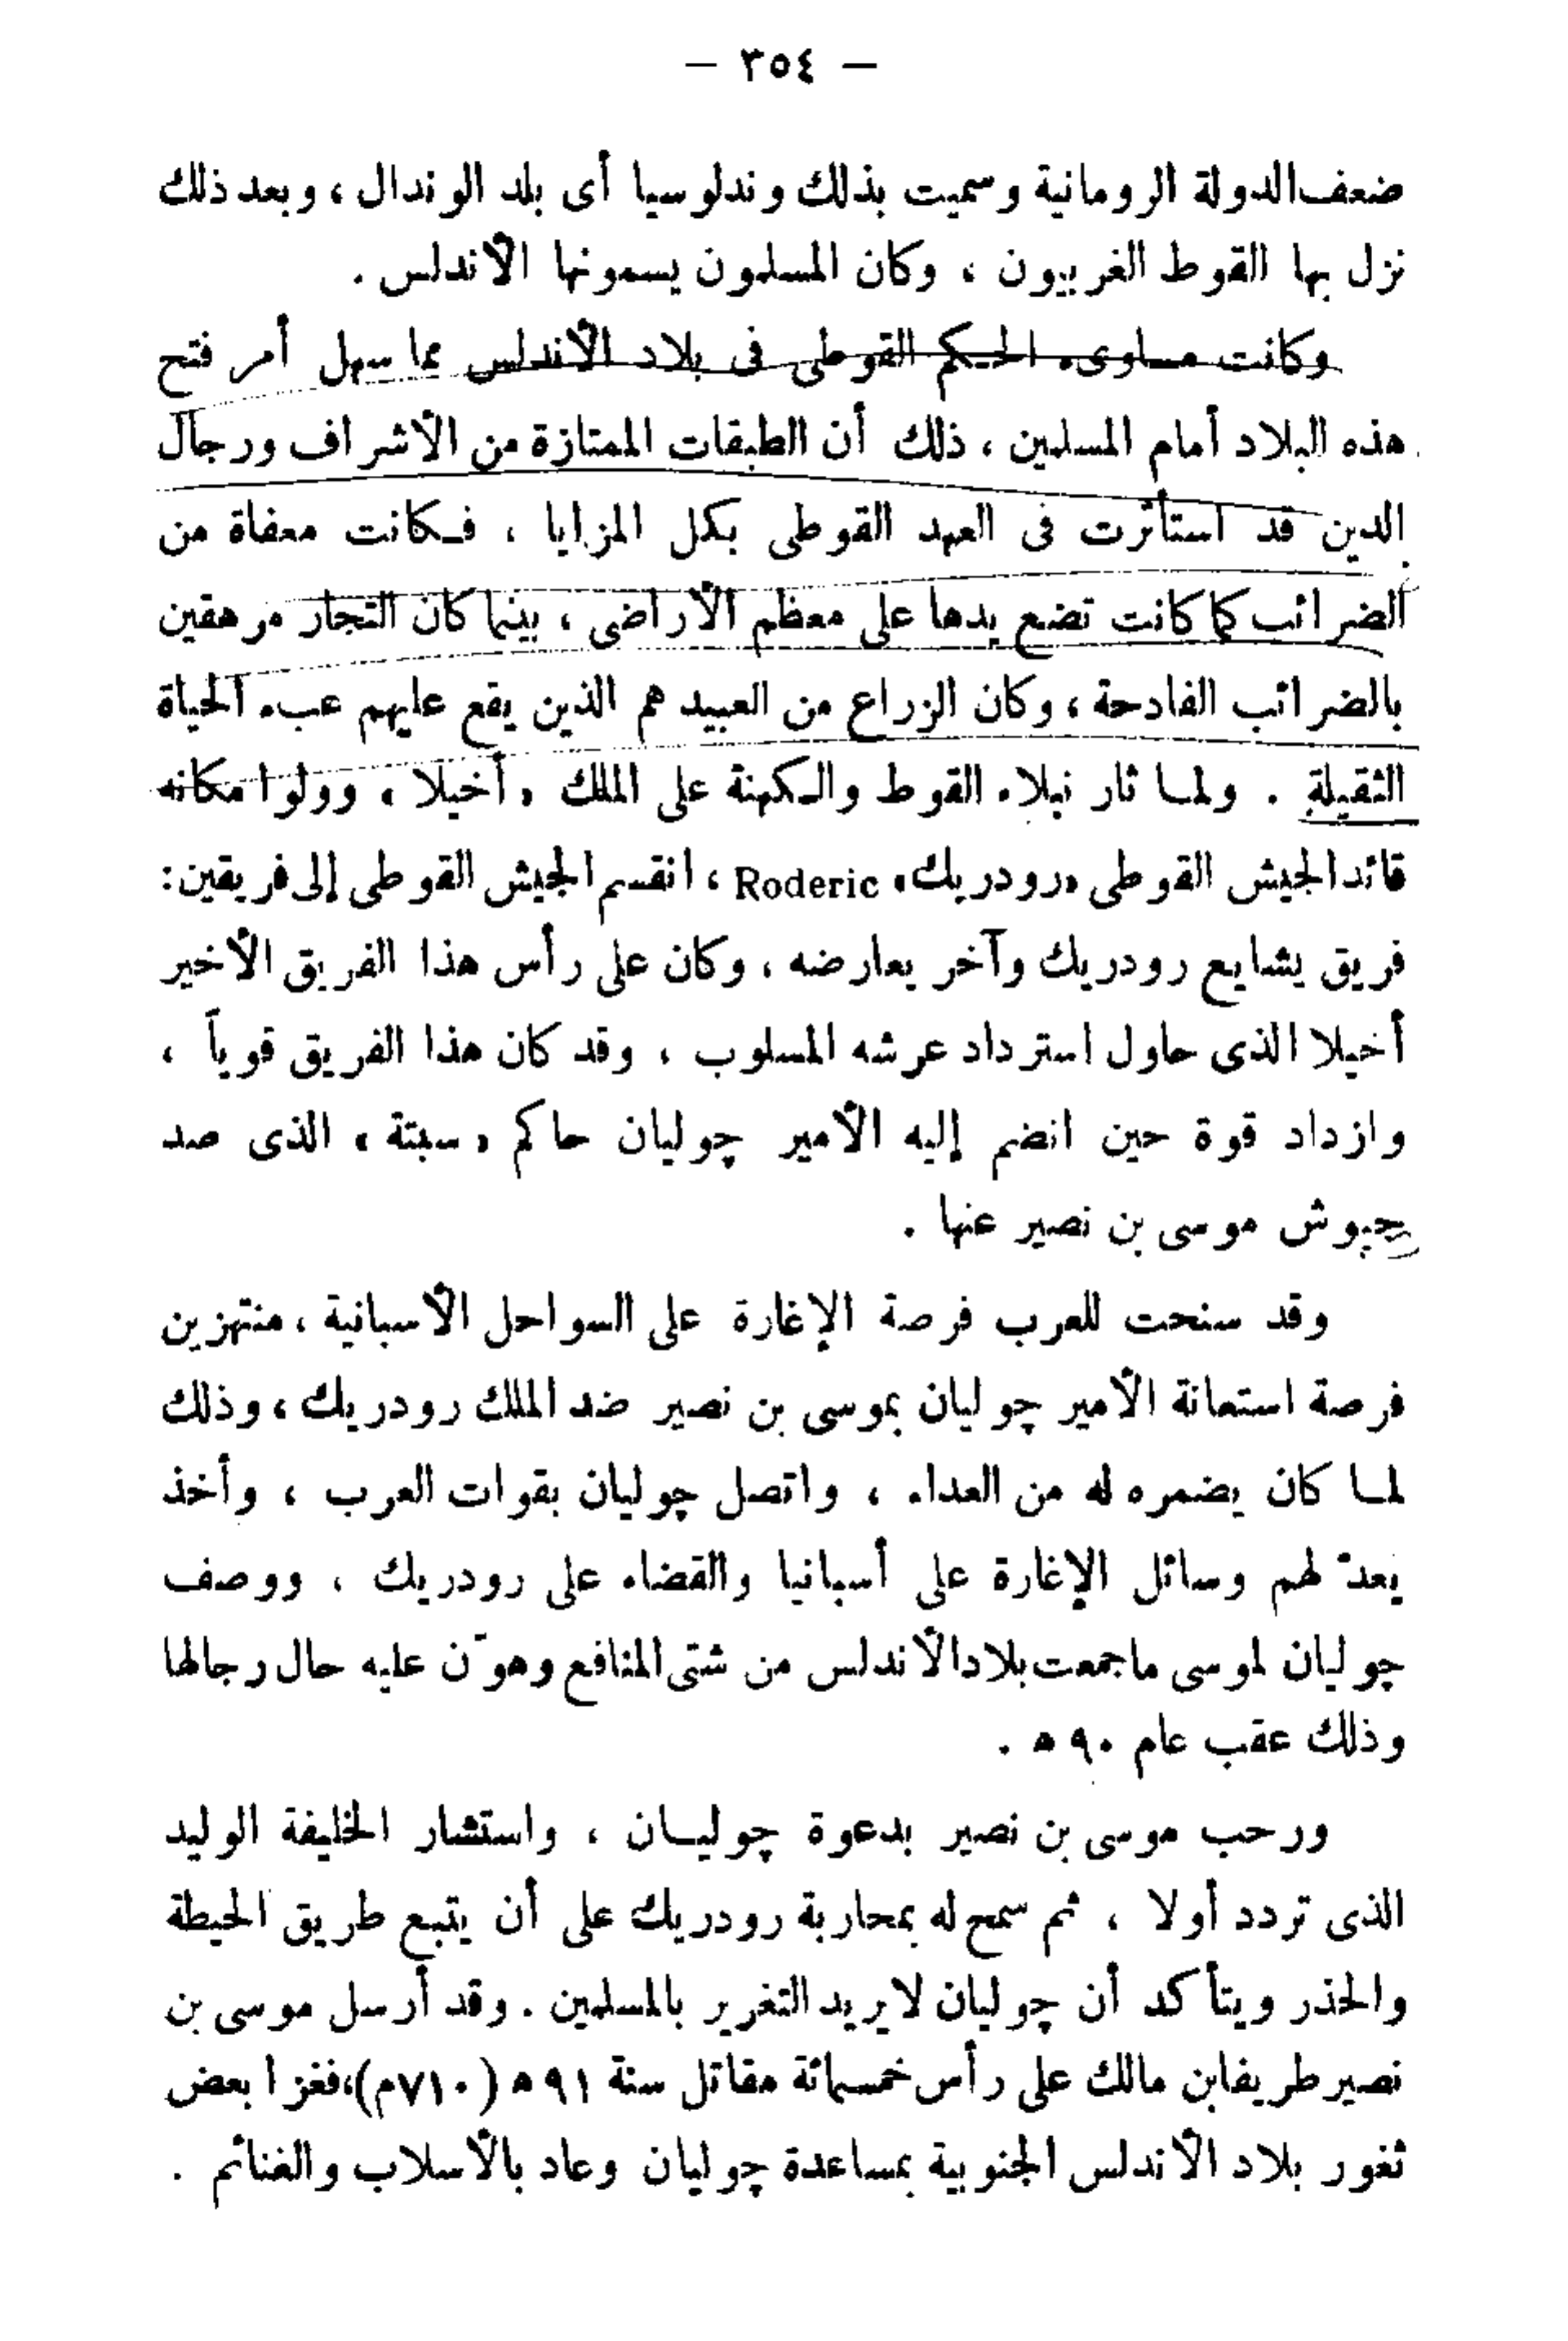 — ٣٥٤ —
ضعف الدولة الرومانية وسميت بذلك وندلوسيا أى بلد الوندال ، وبعد ذلك
نزل بها القوط الغربيون ، وكان المسلمون يسمونها الأندلس .
وكانت مساوىء الحكم القوطى فى بلاد الأندلس مما سهل أمر فتح
هذه البلاد أمام المسلمين ، ذلك أن الطبقات الممتازة من الأشراف ورجال
الدين قد استأثرت فى العهد القوطى بكل المزايا ، فكانت معفاة من
الضرائب كما كانت تضع يدها على معظم الأراضى ، بينما كان التجار مرهقين
بالضرائب الفادحة ، وكان الزراع من العبيد هم الذين يقع عليهم عبء الحياة
الثقيلة . ولما ثار نبلاء القوط والكهنة على الملك « أخيلا » وولوا مكانه
قائد الجيش القوطى «رودريك» Roderic ، انقسم الجيش القوطى إلى فريقين :
فريق يشايع رودريك وآخر يعارضه ، وكان على رأس هذا الفريق الأخير
أخيلا الذى حاول استرداد عرشه المسلوب ، وقد كان هذا الفريق قوياً ،
وازداد قوة حين انضم إليه الأمير چوليان حاكم « سبتة » الذى صد
جيوش موسى بن نصير عنها .
وقد سنحت للعرب فرصة الإغارة على السواحل الأسبانية ، منتهزين
فرصة استعانة الأمير چوليان بموسى بن نصير ضد الملك رودريك ، وذلك
لما كان يضمره له من العداء ، واتصل چوليان بقوات العرب ، وأخذ
يعدّ لهم وسائل الإغارة على أسبانيا والقضاء على رودريك ، ووصف
چوليان لموسى ما جمعت بلاد الأندلس من شتى المنافع وهوّن عليه حال رجالها
وذلك عقب عام ٩٠ ه .
ورحب موسى بن نصير بدعوة چوليان ، واستشار الخليفة الوليد
الذى تردد أولا ، ثم سمح له بمحاربة رودريك على أن يتبع طريق الحيطة
والحذر ويتأكد أن چوليان لا يريد التغرير بالمسلمين . وقد أرسل موسى بن
نصير طريفا بن مالك على رأس خمسمائة مقاتل سنة ٩١ ه ( ٧١٠م)، فغزا بعض
ثغور بلاد الأندلس الجنوبية بمساعدة چوليان وعاد بالأسلاب والغنائم .